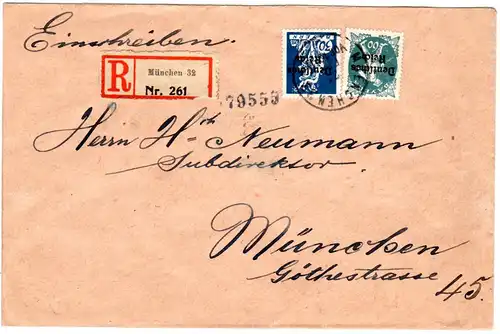 Einschreiben.
R
München 32
Nr. 261
60
Deutsches
Reich
100
Deutsches
Reich
MÜNCHEN
79559
Herrn Hch Neumann
Subdirektor
München
Göthestrasse 45.